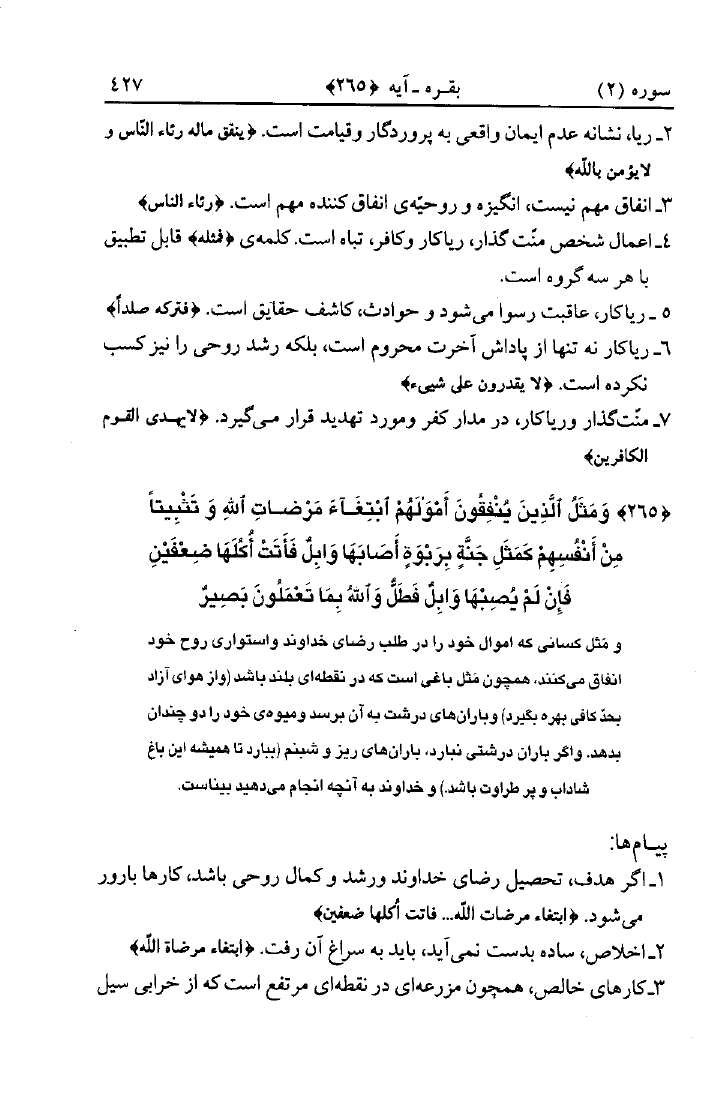 سوره (۲) بقره ـ آیه ﴿۲۶۵﴾ ٤۲۷
۲ـ ریا، نشانه عدم ایمان واقعی به پروردگار وقیامت است. ﴿ینفق ماله رئاء النّاس و
لایؤمن باللّه﴾
۳ـ انفاق مهم نیست، انگیزه و روحیّه‌ی انفاق کننده مهم است. ﴿رئاء الناس﴾
٤ـ اعمال شخص منّت گذار، ریاکار وکافر، تباه است. کلمه‌ی ﴿فمثله﴾ قابل تطبیق
با هر سه گروه است.
٥ ـ ریاکار، عاقبت رسوا می‌شود و حوادث، کاشف حقایق است. ﴿فترکه صلداً﴾
٦ـ ریاکار نه تنها از پاداش آخرت محروم است، بلکه رشد روحی را نیز کسب
نکرده است. ﴿لا یقدرون علی شییء﴾
۷ـ منّت‌گذار وریاکار، در مدار کفر ومورد تهدید قرار می‌گیرد. ﴿لایهدی القوم
الکافرین﴾
﴿۲٦٥﴾ وَمَثَلُ ٱلَّذِینَ یُنْفِقُونَ أَمْوَٰلَهُمْ ٱبْتِغَـآءَ مَرْضَـاتِ ٱللَّهِ وَ تَثْبِیتاً
مِنْ أَنْفُسِهِمْ کَمَثَلِ جَنَّةٍ بِرَبْوَةٍ أَصَابَهَا وَابِلٌ فَأَتَتْ أُکُلَهَا ضِعْفَیْنِ
فَإِنْ لَمْ یُصِبْهَا وَابِلٌ فَطَلٌّ وَٱللهُ بِمَا تَعْمَلُونَ بَصِیرٌ
و مَثل کسانی که اموال خود را در طلب رضای خداوند واستواری روح خود
انفاق می‌کنند، همچون مَثل باغی است که در نقطه‌ای بلند باشد (واز هوای آزاد
بحدّ کافی بهره بگیرد) وباران‌های درشت به آن برسد ومیوه‌ی خود را دو چندان
بدهد. واگر باران درشتی نبارد، باران‌های ریز و شبنم (ببارد تا همیشه این باغ
شاداب و پر طراوت باشد.) و خداوند به آنچه انجام می‌دهید بیناست.
پیـام‌ها:
۱ـ اگر هدف، تحصیل رضای خداوند ورشد و کمال روحی باشد، کارها بارور
می‌شود. ﴿ابتغاء مرضات الله... فاتت أکلها ضعفین﴾
۲ـ اخلاص، ساده بدست نمی‌آید، باید به سراغ آن رفت. ﴿ابتغاء مرضاة اللّه﴾
۳ـ کارهای خالص، همچون مزرعه‌ای در نقطه‌ای مرتفع است که از خرابی سیل